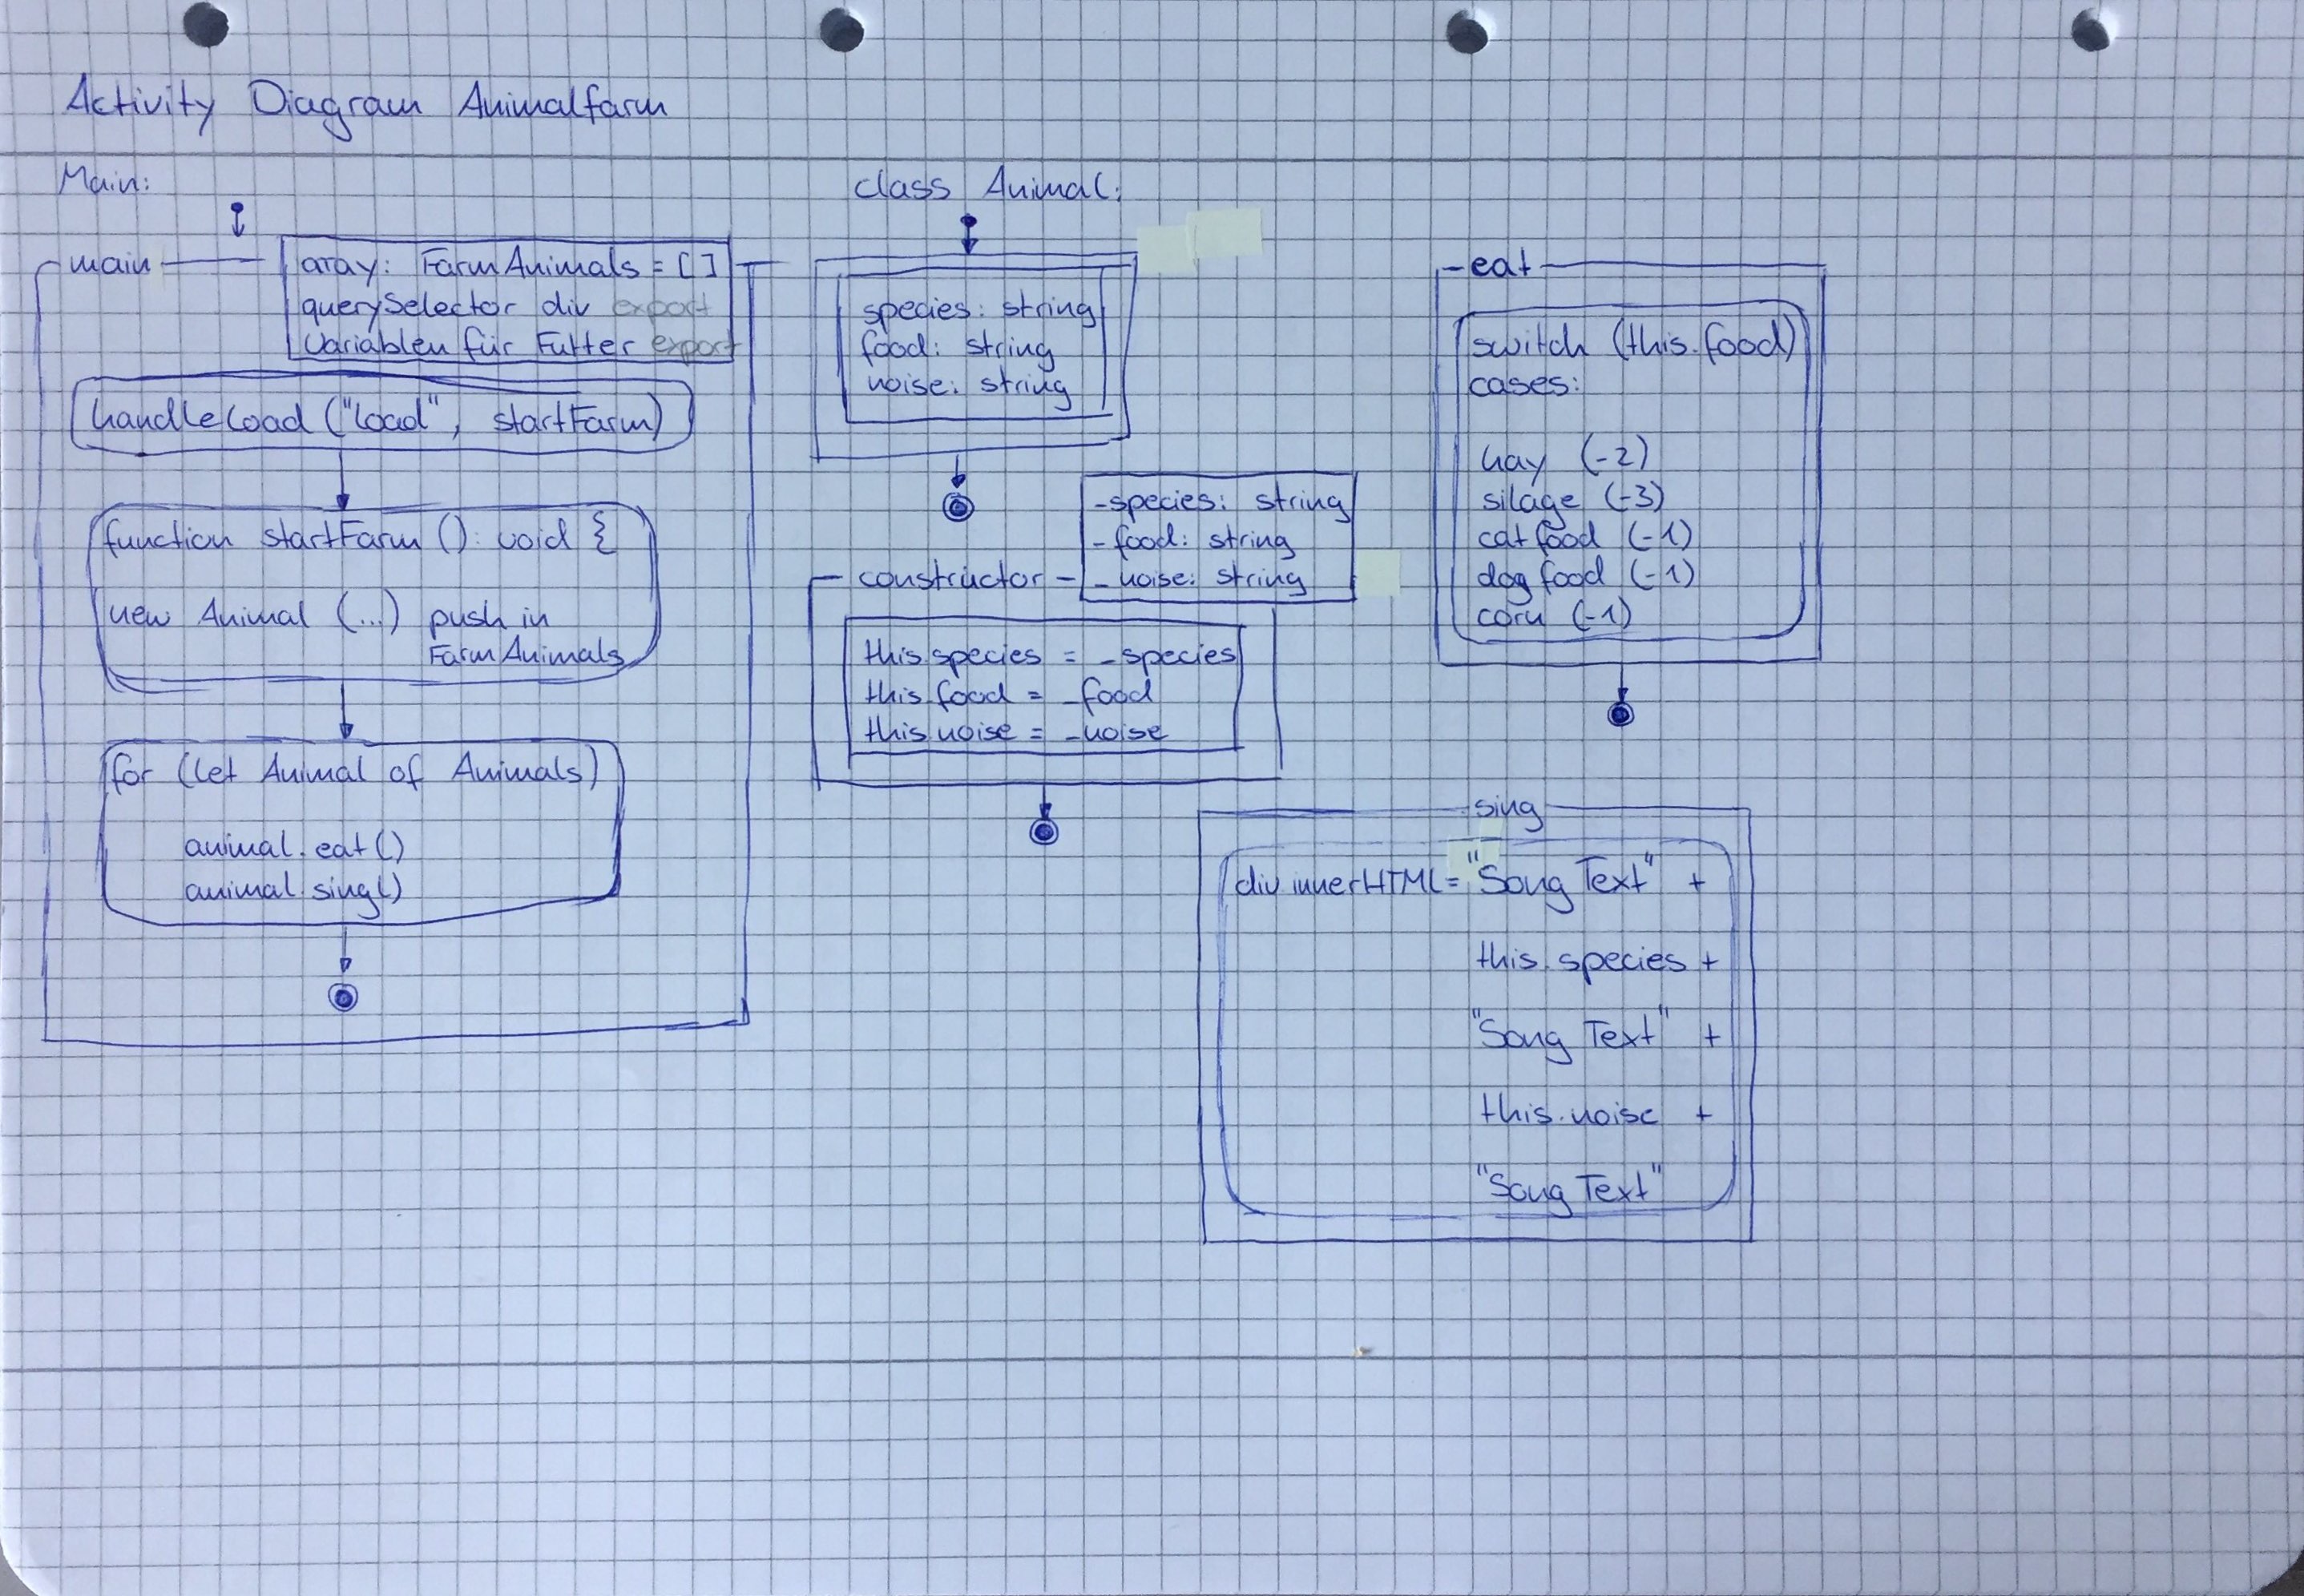 Activity Diagram Animalfarm
Main:
main
array: FarmAnimals = []
querySelector div export
Variablen für Futter export
handleload ("load", startFarm)
function startFarm (): void {
new Animal (...) push in
FarmAnimals
for (let Animal of Animals)
animal.eat()
animal.sing()
class Animal:
species: string
food: string
noise: string
constructor
_species: string
_food: string
_noise: string
this.species = _species
this.food = _food
this.noise = _noise
eat
switch (this.food)
cases:
hay (-2)
silage (-3)
cat food (-1)
dog food (-1)
corn (-1)
sing
div.innerHTML = "Song Text" +
this.species +
"Song Text" +
this.noise +
"Song Text"